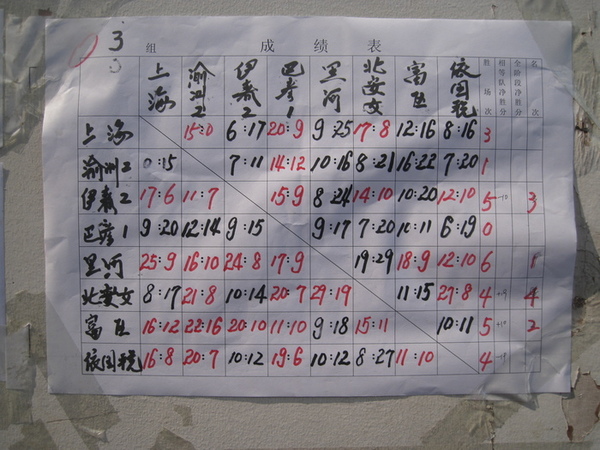 3 组 成绩表
上海 渝洲2 伊春2 巴彦1 黑河 北安文 富 依国税 胜场次 相等队净胜分 全阶段净胜分 名次
上海 15:0 6:17 20:9 9:25 17:8 12:16 8:16 3
渝洲2 0:15 7:11 14:12 10:16 8:21 16:22 7:20 1
伊春2 17:6 11:7 15:9 8:24 14:10 10:20 12:10 5 3
巴彦1 9:20 12:14 9:15 9:17 7:20 10:11 6:19 0
黑河 25:9 16:10 24:8 17:9 19:29 18:9 12:10 6 1
北安文 8:17 21:8 10:14 20:7 29:19 11:15 27:8 4 4
富 16:12 22:16 20:10 11:10 9:18 15:11 10:11 5 2
依国税 16:8 20:7 10:12 19:6 10:12 8:27 11:10 4